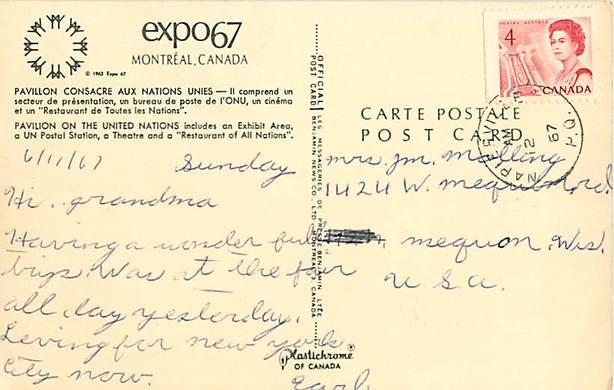 expo67
MONTRÉAL, CANADA
© 1963 Expo 67
PAVILLON CONSACRE AUX NATIONS UNIES — Il comprend un
secteur de présentation, un bureau de poste de l'ONU, un cinéma
et un "Restaurant de Toutes les Nations".
PAVILION ON THE UNITED NATIONS includes an Exhibit Area,
a UN Postal Station, a Theatre and a "Restaurant of All Nations".
6/11/67 Sunday
Hi grandma
Having a wonder ful
trip, Was at the fair
all day yesterday.
Leving for new york
City now.
Earl
OFFICIAL POST CARD
LES MESSAGERIES DE PRESSE BENJAMIN LTÉE
BENJAMIN NEWS CO. LTD. MONTREAL 3, CANADA
Plastichrome®
OF CANADA
POSTES POSTAGE
4
CANADA
CARTE POSTALE
POST CARD
AM
12
67
P.Q.
mrs. Jm. Malling
1424 W. mequon rd.
mequon, Wis.
U S A.